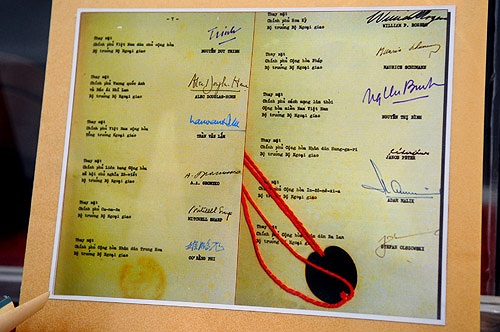 - 7 -
Thay mặt
Chính phủ Việt Nam dân chủ cộng hòa
Bộ trưởng Bộ Ngoại giao
Trinh
NGUYỄN DUY TRINH
Thay mặt
Chính phủ Vương quốc Anh
và Bắc Ai Nhĩ Lan
Bộ trưởng Bộ Ngoại giao
ALEC DOUGLAS-HOME
Thay mặt
Chính phủ Việt Nam cộng hòa
Tổng trưởng Bộ Ngoại giao
TRẦN VĂN LẮM
Thay mặt
Chính phủ Liên bang Cộng hòa
xã hội chủ nghĩa Xô-viết
Bộ trưởng Bộ Ngoại giao
A.A. GROMYKO
Thay mặt
Chính phủ Ca-na-đa
Bộ trưởng Bộ Ngoại giao
Mitchell Sharp
MITCHELL SHARP
Thay mặt
Chính phủ Cộng hòa Nhân dân Trung Hoa
Bộ trưởng Bộ Ngoại giao
CƠ BẰNG PHI
Thay mặt
Chính phủ Hoa Kỳ
Bộ trưởng Bộ Ngoại giao
WILLIAM P. ROGERS
Thay mặt
Chính phủ Cộng hòa Pháp
Bộ trưởng Bộ Ngoại giao
MAURICE SCHUMANN
Thay mặt
Chính phủ cách mạng lâm thời
Cộng hòa miền Nam Việt Nam
Bộ trưởng Bộ Ngoại giao
NGUYỄN THỊ BÌNH
Thay mặt
Chính phủ Cộng hòa Nhân dân Hung-ga-ri
Bộ trưởng Bộ Ngoại giao
JANOS PETER
Thay mặt
Chính phủ Cộng hòa In-đô-nê-xi-a
Bộ trưởng Bộ Ngoại giao
ADAM MALIK
Thay mặt
Chính phủ Cộng hòa Nhân dân Ba Lan
Bộ trưởng Bộ Ngoại giao
STEFAN OLSZOWSKI